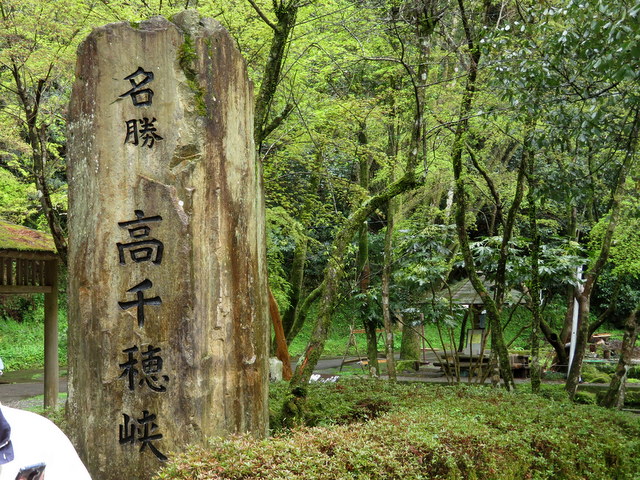 名勝
高千穂峡